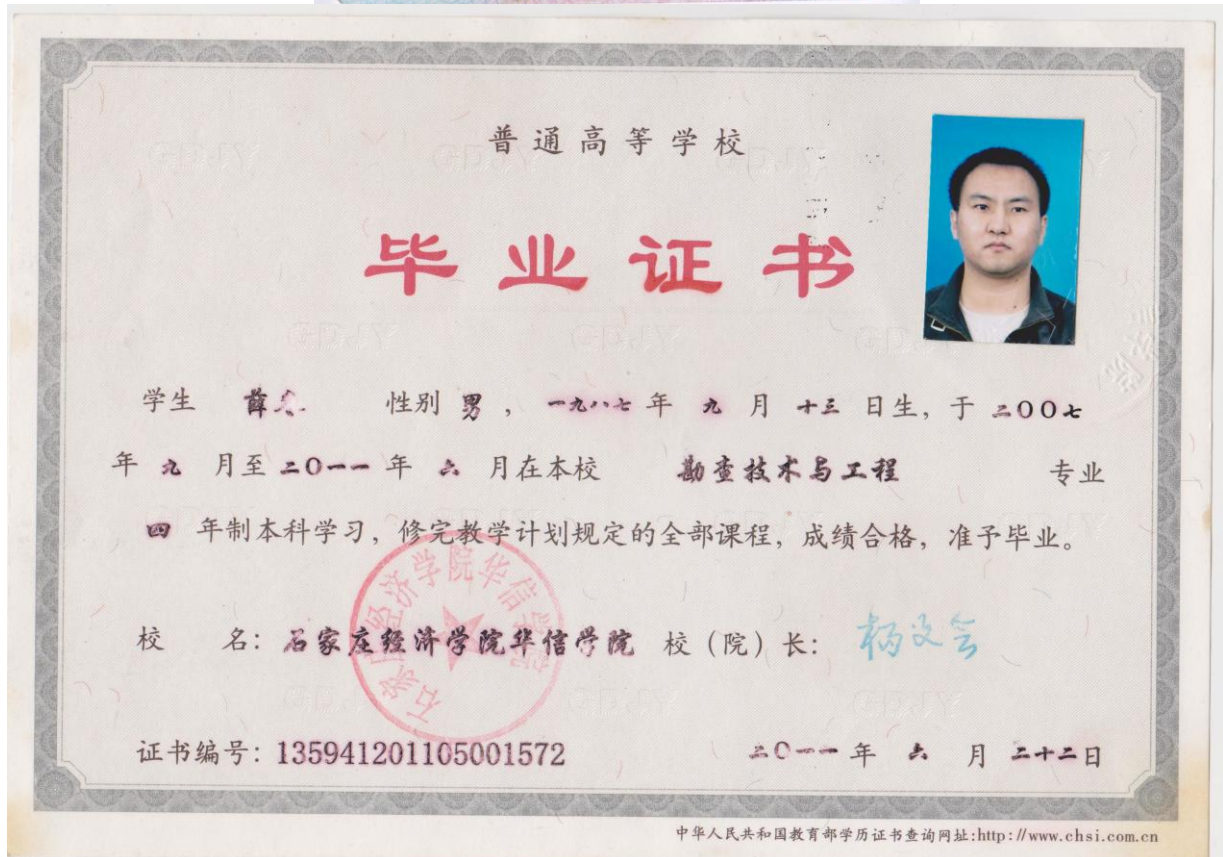 普通高等学校
毕业证书
学生 薛 性别 男 ， 一九八七 年 九 月 十三 日生，于 二00七
年 九 月至 二0一一 年 六 月在本校 勘查技术与工程 专业
四 年制本科学习，修完教学计划规定的全部课程，成绩合格，准予毕业。
石家庄经济学院华信学院
校 名：石家庄经济学院华信学院 校（院）长：杨文会
证书编号：135941201105001572 二0一一 年 六 月 二十二日
中华人民共和国教育部学历证书查询网址:http://www.chsi.com.cn